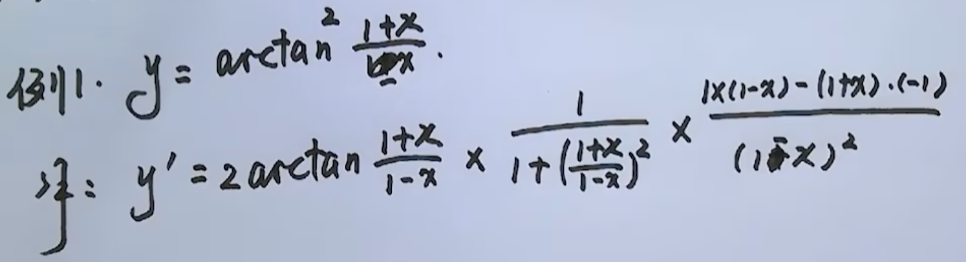 例1. y = arctan² (1+x)/(1-x).
解: y' = 2 arctan (1+x)/(1-x) × 1/(1+((1+x)/(1-x))²) × (1×(1-x)-(1+x)·(-1))/(1-x)²